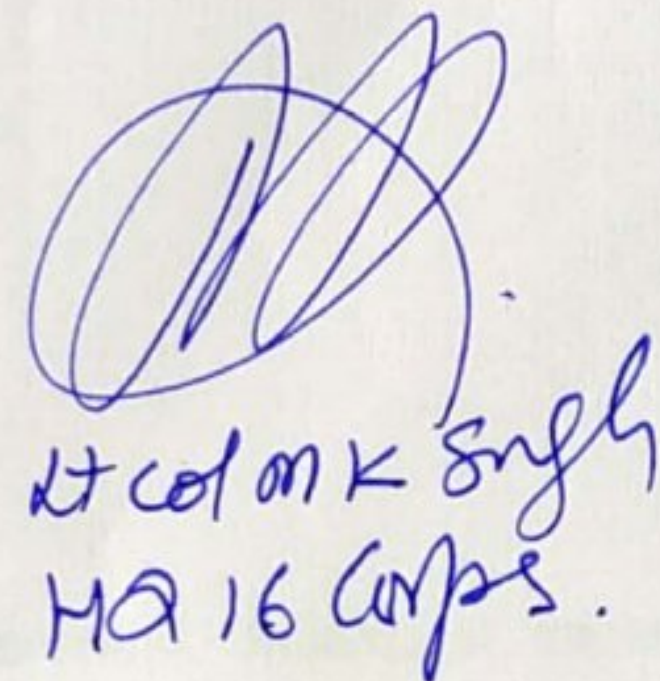 Lt Col M K Singh
HQ 16 Corps.